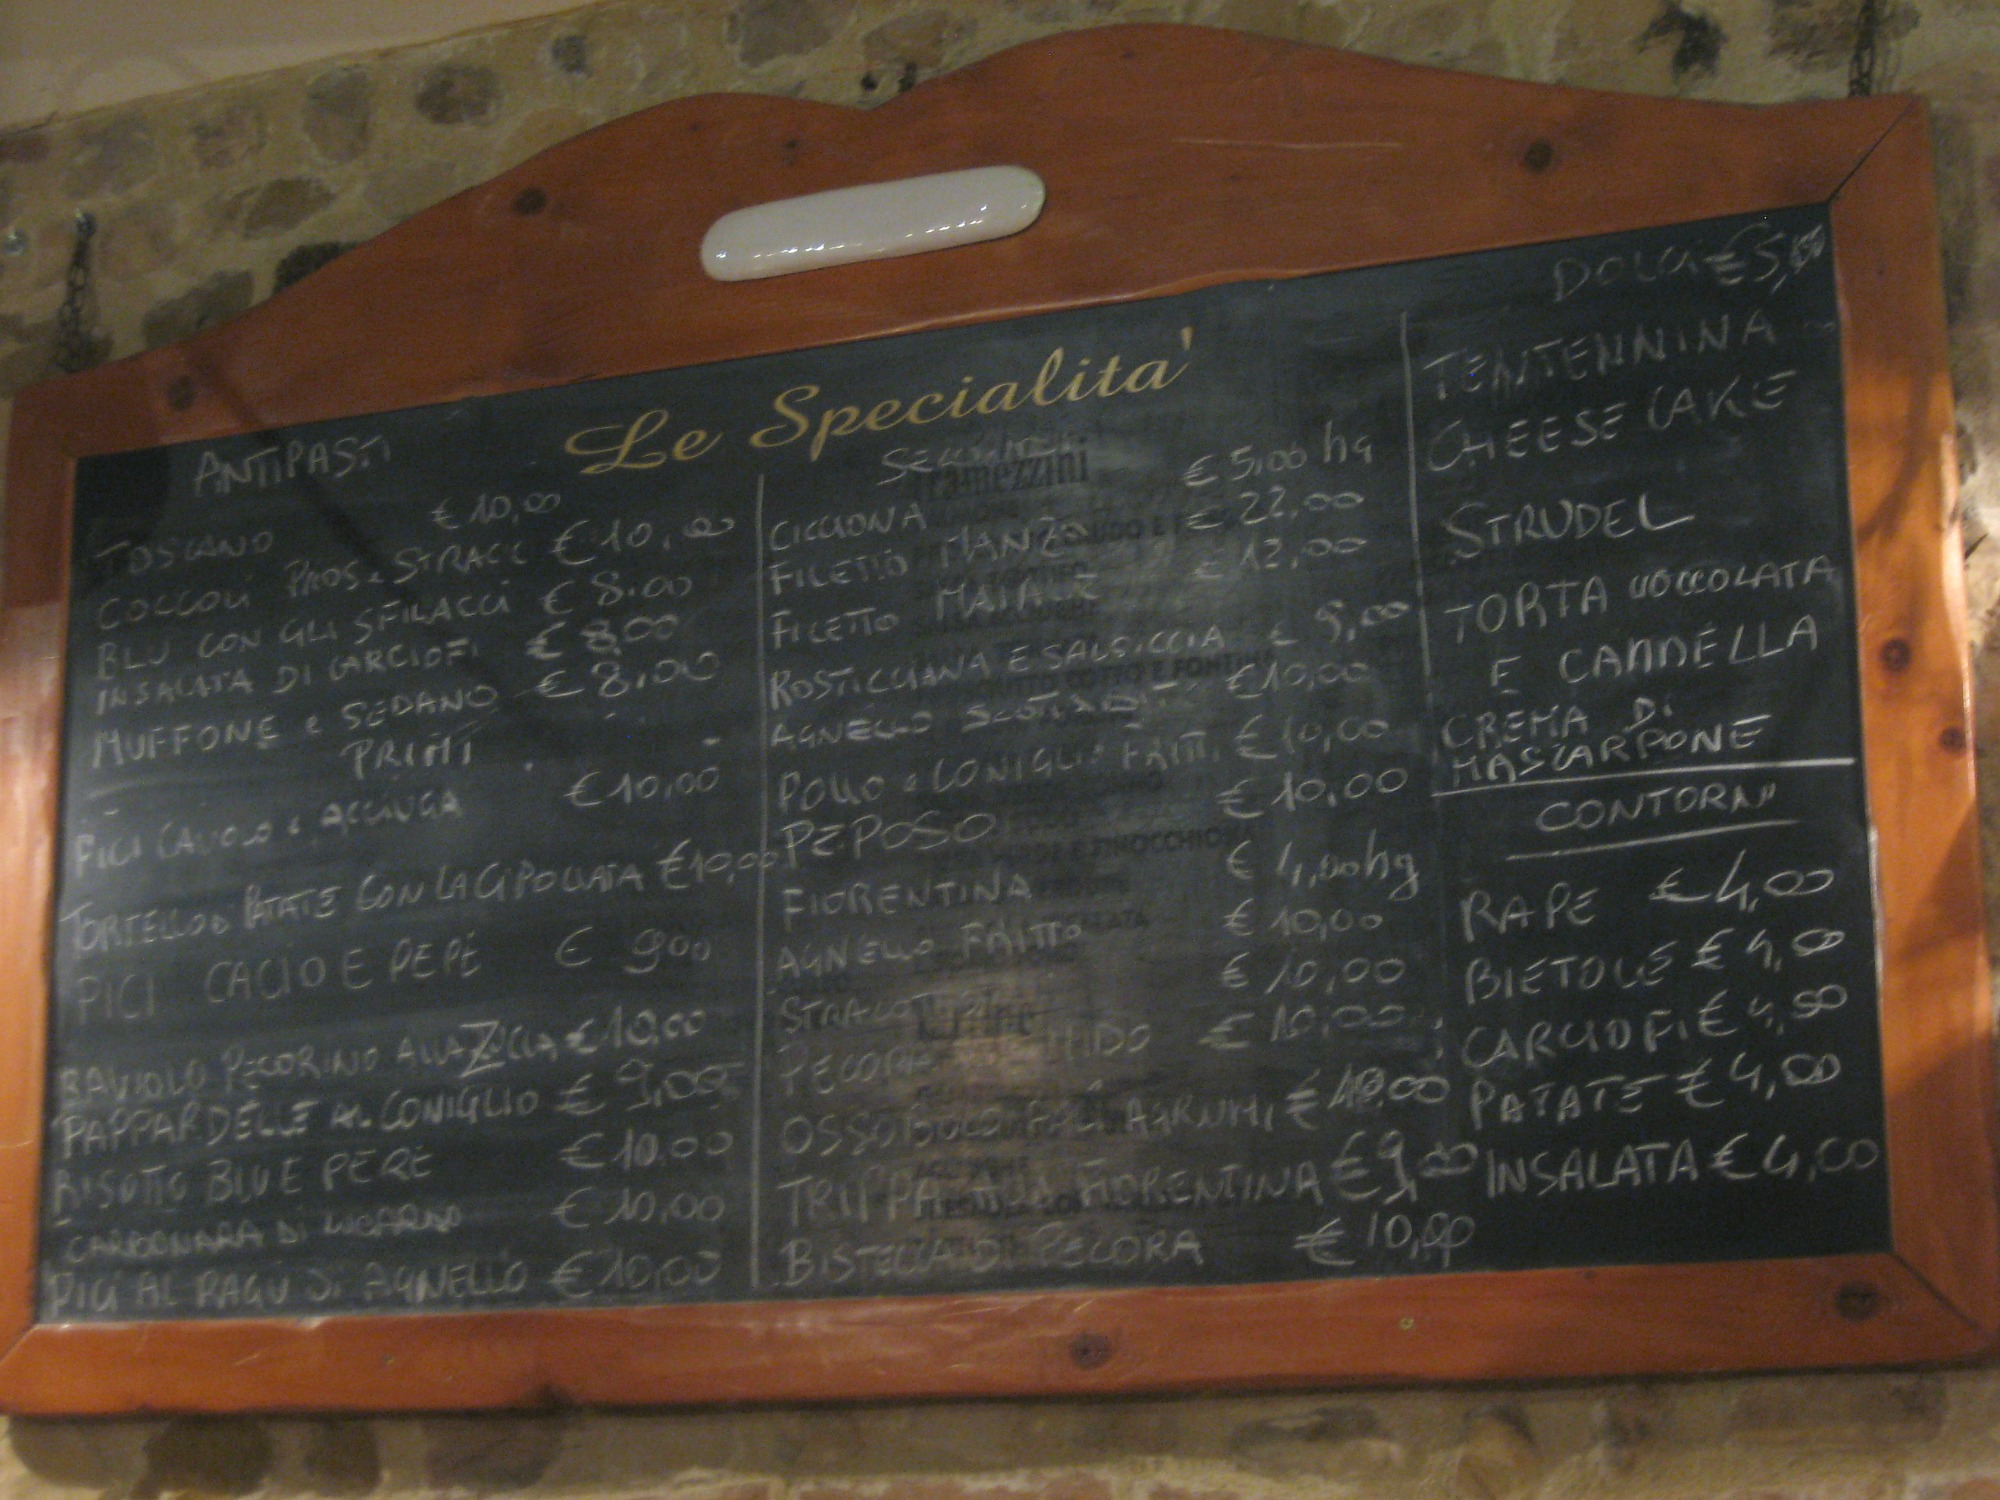 Le Specialita'
ANTIPASTI
TOSCANO € 10,00
COCCOLI PROS. STRACC € 10,00
BLU CON GLI SFILACCI € 8.00
INSALATA DI CARCIOFI € 8,00
MUFFONE e SEDANO € 8,00
PRIMI
PICI CAVOLO e ACCIUGA € 10,00
TORTELLO PATATE CON LA CIPOLLATA € 10,00
PICI CACIO E PEPE € 900
RAVIOLO PECORINO ALLA ZUCCA € 10,00
PAPPARDELLE AL CONIGLIO € 9,00
RISOTTO BLU E PERE € 10.00
CARBONARA DI € 10,00
PICI AL RAGU DI AGNELLO € 10,00
CICCIONA € 5,00 hg
FILETTO MANZO € 22,00
FILETTO MAIALE € 12,00
ROSTICCIANA E SALSICCIA € 9,00
AGNELLO € 10,00
POLLO e CONIGLIO FRITTI € 10,00
PEPOSO € 10,00
FIORENTINA € 4,00 hg
AGNELLO FRITTO € 10,00
€ 10,00
PECORA € 10,00
OSSOBUCO AGRUMI € 10,00
TRIPPA ALLA FIORENTINA € 9,00
BISTECCA DI PECORA € 10,00
DOLCI € 5,00
TENTENNINA
CHEESE CAKE
STRUDEL
TORTA CIOCCOLATA
E CANNELLA
CREMA DI
MASCARPONE
CONTORNI
RAPE € 4,00
BIETOLE € 4,00
CARCIOFI € 4,00
PATATE € 4,00
INSALATA € 4,00